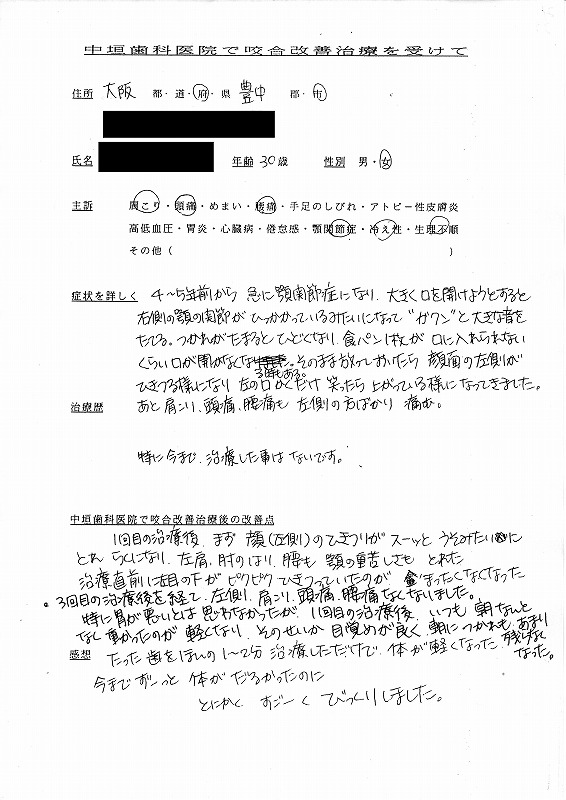 中垣歯科医院で咬合改善治療を受けて
住所 大阪 都・道・府・県 豊中 郡・市
氏名 年齢 30歳 性別 男・女
主訴 肩こり・頭痛・めまい・腰痛・手足のしびれ・アトピー性皮膚炎
高低血圧・胃炎・心臓病・倦怠感・顎関節症・冷え性・生理不順
その他( )
症状を詳しく 4〜5年前から 急に顎関節症になり、大きく口を開けようとすると
右側の顎の関節が ひっかかっているみたいになって "ガクン"と大きな音を
たてる。つかれがたまると ひどくなり、食パン1枚が 口に入れられない
くらい口が開かなくなる時もある。そのまま放っておいたら 顔面の左側が
ひきつる様になり 左の口かくだけ 笑ったら上がっている様になってきました。
あと肩こり、頭痛、腰痛も 左側の方ばかり 痛む。
治療歴
特に今まで、治療した事はないです。
中垣歯科医院で咬合改善治療後の改善点
1回目の治療後、まず 顔(左側)のひきつりが スーッと うそみたいに
とれ らくになり、左肩、肘のはり、腰も 顎の重苦しさも とれた
治療直前に左目の下が ピクピク ひきつっていたのが まったくなくなった
・3回目の治療後を経て、左側、肩こり、頭痛、腰痛なくなりました。
特に胃が悪いとは 思わなかったが、1回目の治療後、いつも 朝なんと
なし重かったのが 軽くなり、そのせいか 目覚めが良く、朝につかれも あまり
残らなくなった。
感想 たった 歯をほんの 1〜2分 治療しただけで、体が軽くなった、
今まで ずーっと 体が だるかったのに
とにかく すごーく びっくりしました。